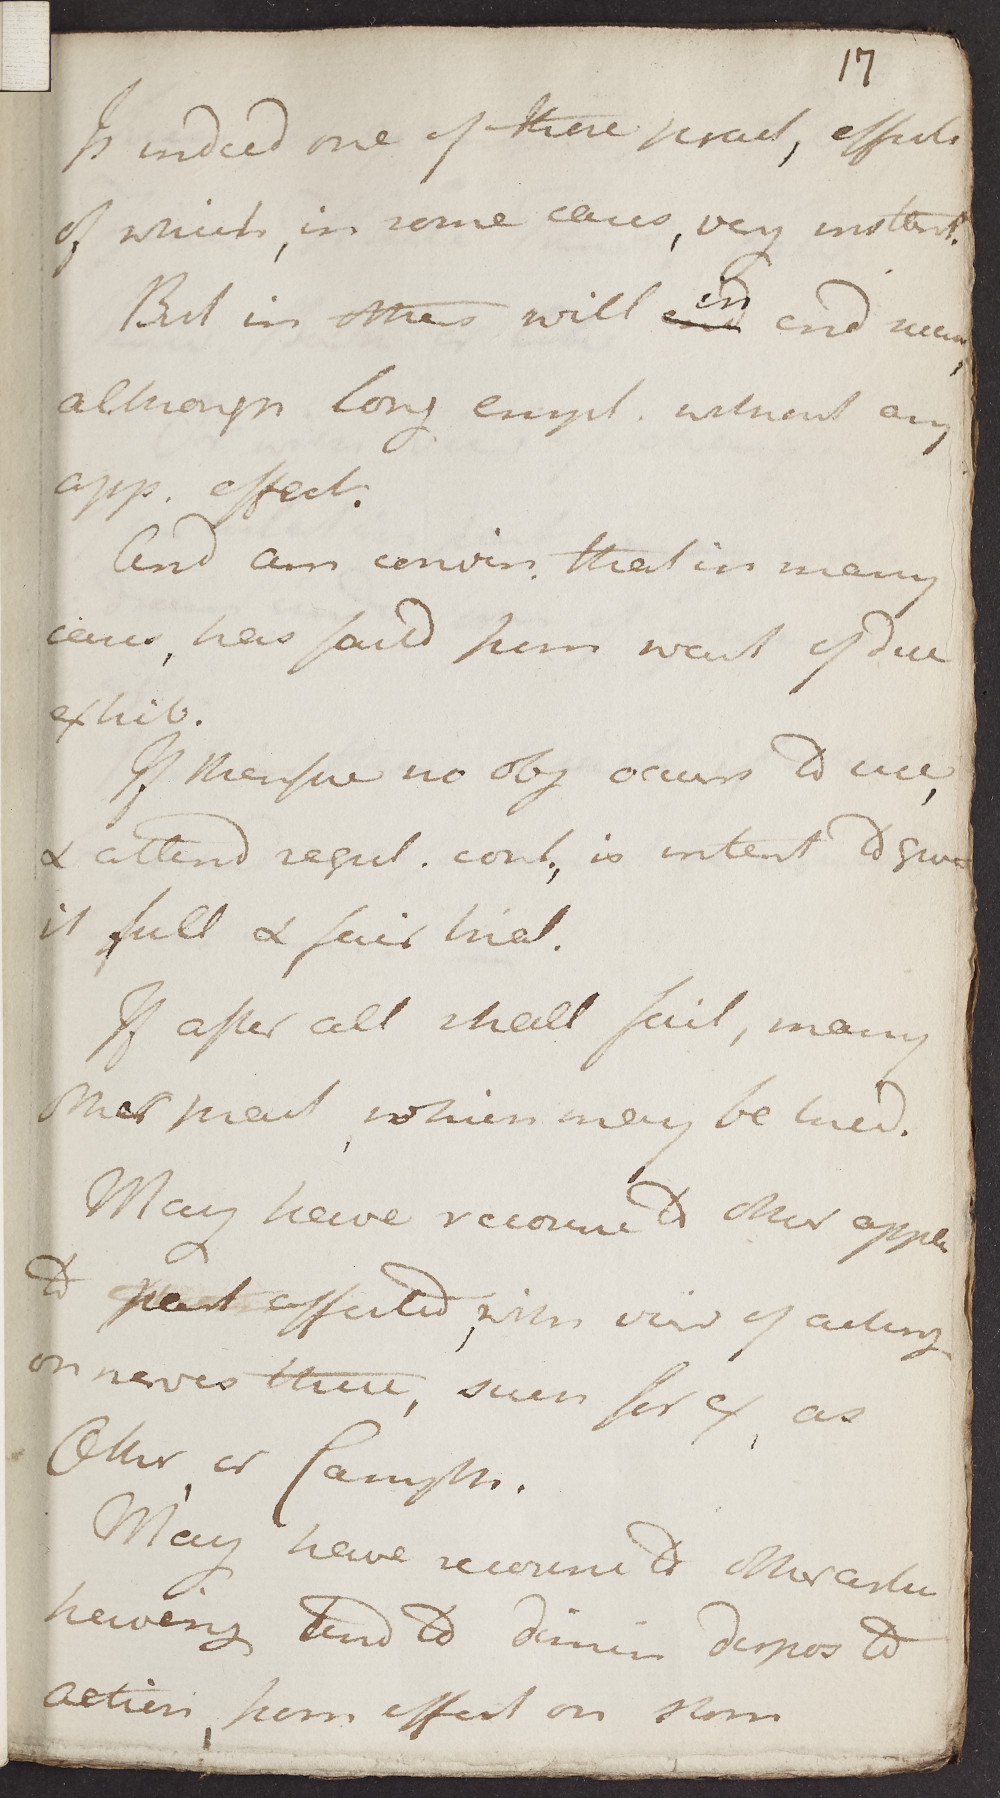 17
Is indeed one of those pract, effects
of which, in some cases, very instant.
But in others will in end
although long empl. without any
app. effect.
And am convin. that in many
cases, has faild from want of due
exhib.
If therefore no obj occurs to use,
& attend regul. cont., is intent to give
it full & fair trial.
If after all shall fail, many
other pract, which may be tried.
May have recourse to other applic
to part affected, with view of acting
on nerves there, such for ex, as
Ether, or Camphr.
May have recourse to other artic
having tend to dimin dispos to
action, from effect on stom